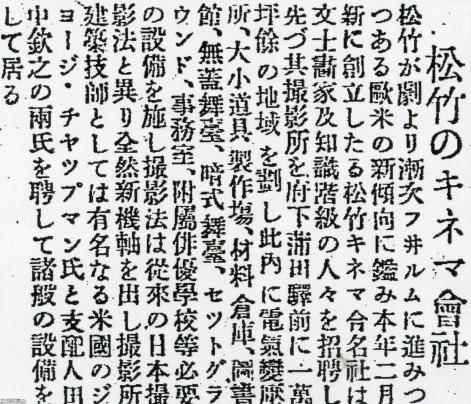 松竹のキネマ會社
松竹が劇より漸次フ井ルムに進みつ
つある歐米の新傾向に鑑み本年二月
新に創立したる松竹キネマ合名社は
文士畵家及知識階級の人々を招聘し
先づ其撮影所を府下蒲田驛前に一萬
坪餘の地域を劃し此內に電氣變壓
所、大小道具製作塲、材料倉庫、圖書
館、無蓋舞臺、暗式舞臺、セットグラ
ウンド、事務室、附屬俳優學校等必要
の設備を施し撮影法は從來の日本撮
影法と異り全然新機軸を出し撮影所
建築技師としては有名なる米國のジ
ョージ・チヤツプマン氏と支配人田
中欽之の兩氏を聘して諸般の設備を
して居る